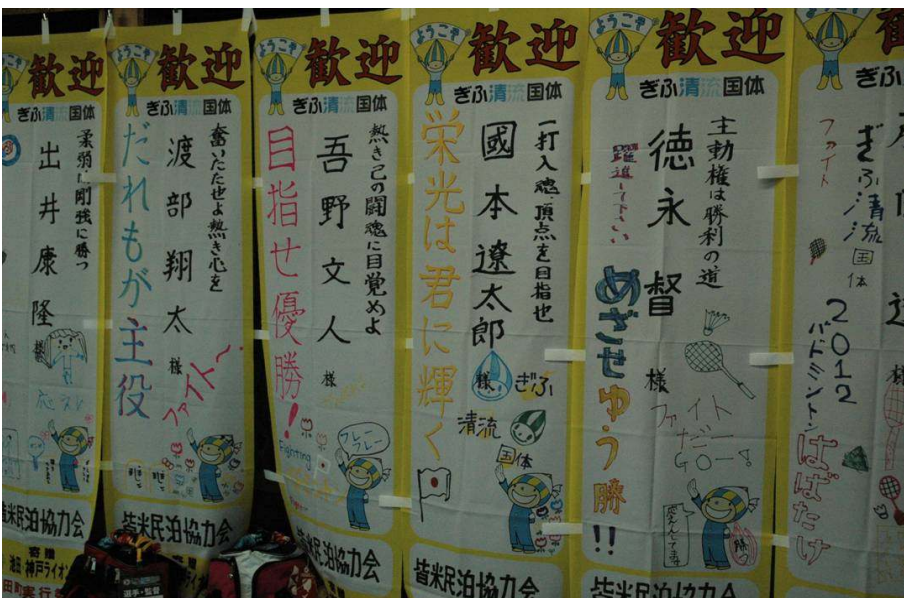 ようこそ
歓迎
ぎふ清流国体
柔弱は剛強に勝つ
出井康隆
様
皆米民泊協力会
寄贈
池田・神戸ライオン
ようこそ
歓迎
ぎふ清流国体
奮いたたせよ熱き心を
渡部翔太
様
だれもが主役
ファイト〜
皆米民泊協力会
選手・監督
ようこそ
歓迎
ぎふ清流国体
熱き己の闘魂に目覚めよ
吾野文人
様
目指せ優勝!
Fighting
フレーフレー
皆米民泊協力会
ようこそ
歓迎
ぎふ清流国体
一打入魂、頂点を目指也
國本遼太郎
様
栄光は君に輝く
ぎふ
清流
国体
皆米民泊協力会
ようこそ
歓迎
ぎふ清流国体
主動権は勝利の道
徳永督
様
めざせゆう勝!!
ファイト
だー
GO〜!
勝つ
皆米民泊協力会
ようこそ
歓
ぎふ
ぎふ清流
国体
ファイト
2012
バドミントン
はばたけ